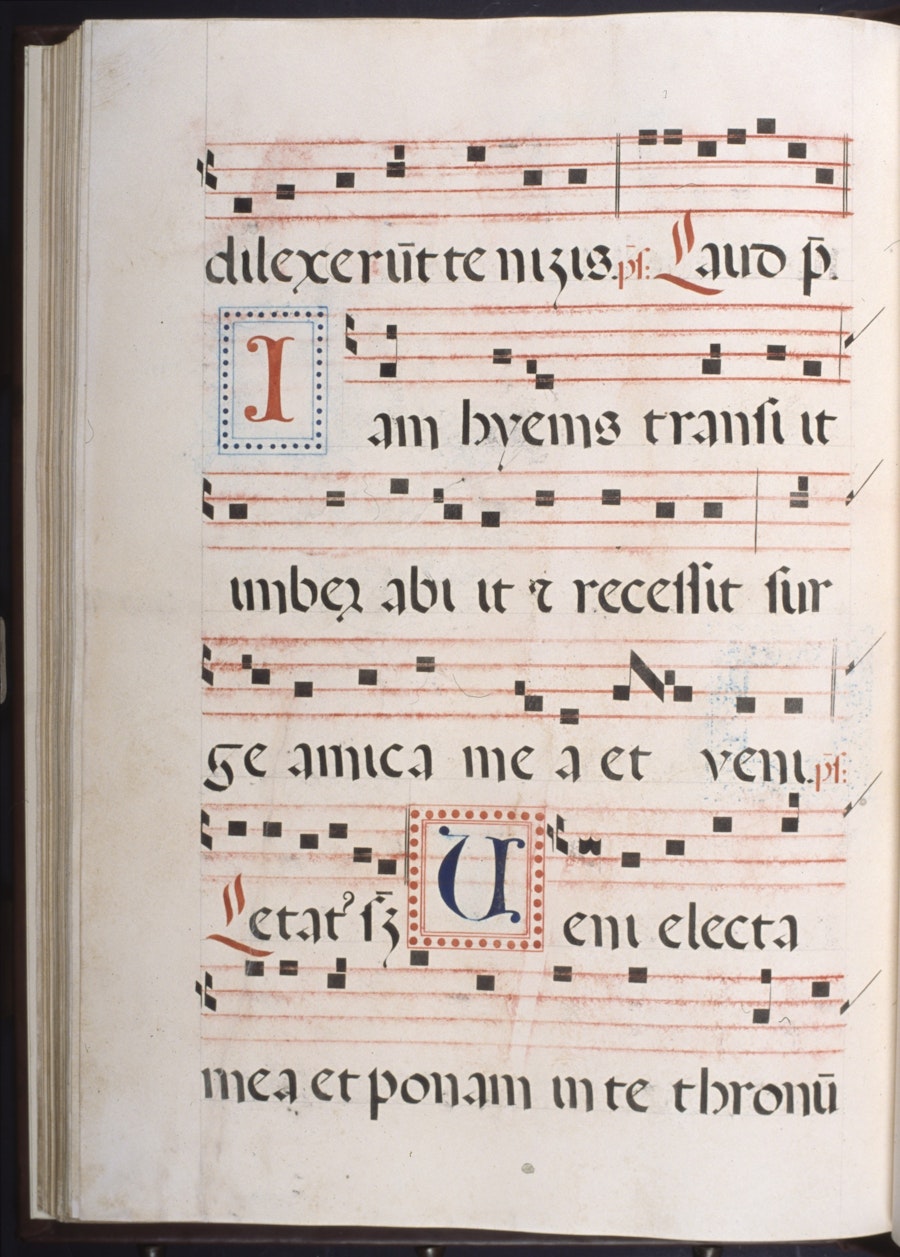 dilexerūt te nizis. ps: Laud p̄.
Iam hyems transi it
imbeꝛ abi it ⁊ recessit sur
ge amica me a et veni. ps:
Letatꝰ sꝫ Veni electa
mea et ponam in te thronū